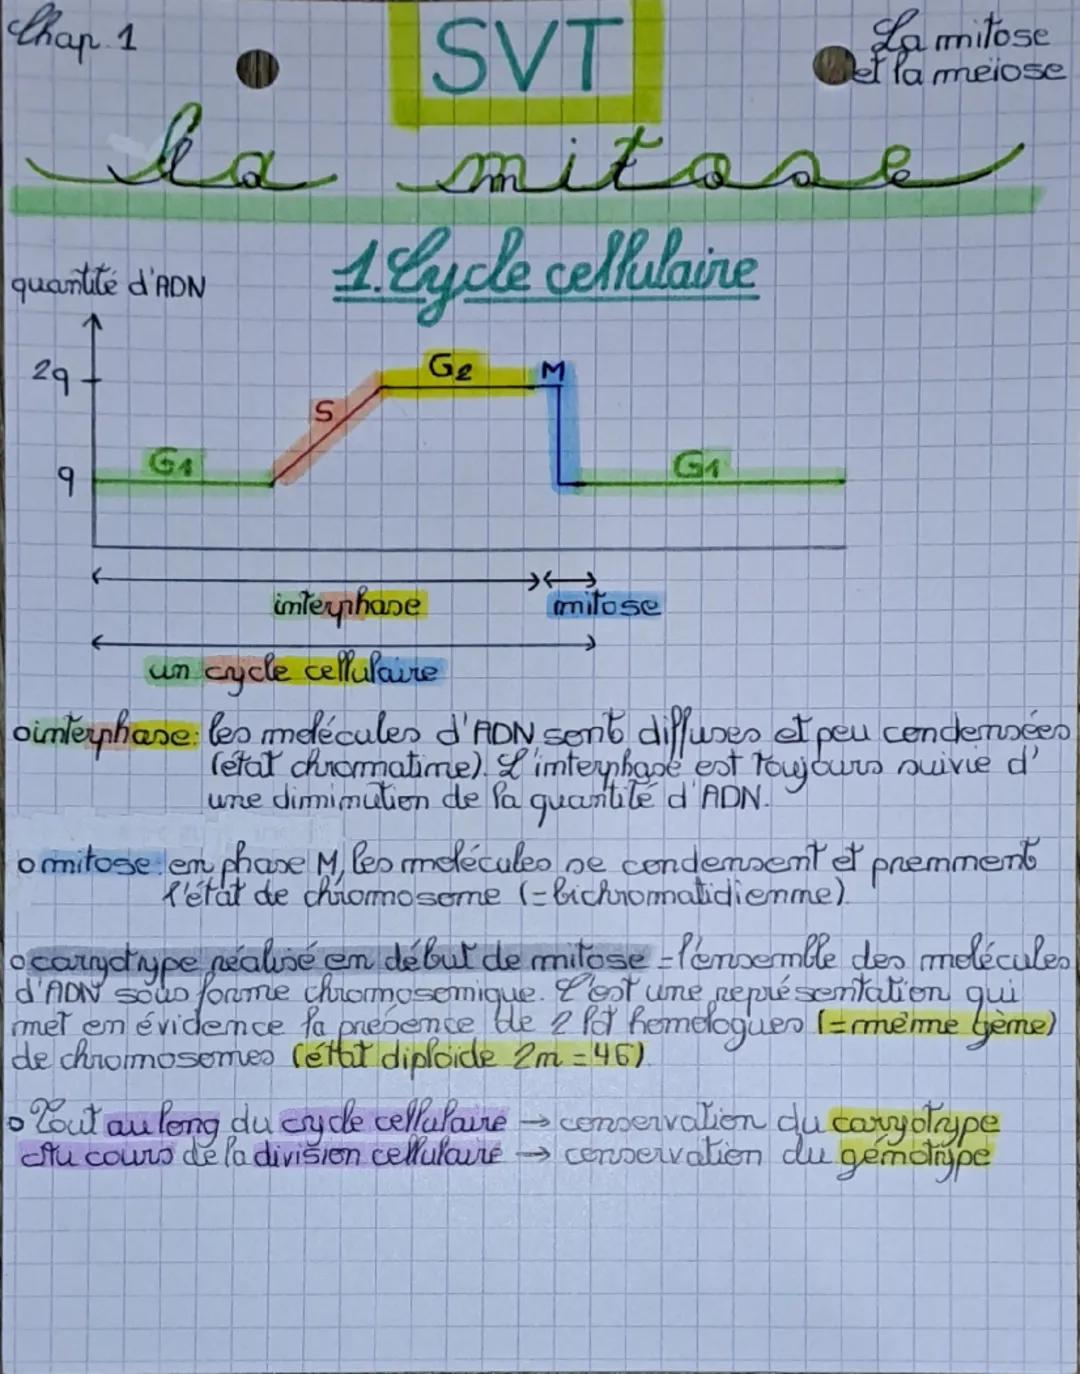 Chap. 1
SVT
La mitose
et la meïose
la mitose
1. Cycle cellulaire
quantité d'ADN
2q
G2
M
S
q
G1
G1
interphase
mitose
un cycle cellulaire
interphase: les molécules d'ADN sont diffuses et peu condensées
(état chromatine). L'interphase est toujours suivie d'
une diminution de la quantité d'ADN.
mitose: en phase M, les molécules se condensent et prennent
l'état de chromosome (=bichromatidienne).
caryotype réalisé en début de mitose = l'ensemble des molécules
d'ADN sous forme chromosomique. C'est une représentation qui
met en évidence la présence de 2 lot homologues (=même gène)
de chromosomes (état diploïde 2n = 46).
Tout au long du cycle cellulaire → conservation du caryotype
Au cours de la division cellulaire → conservation du génotype